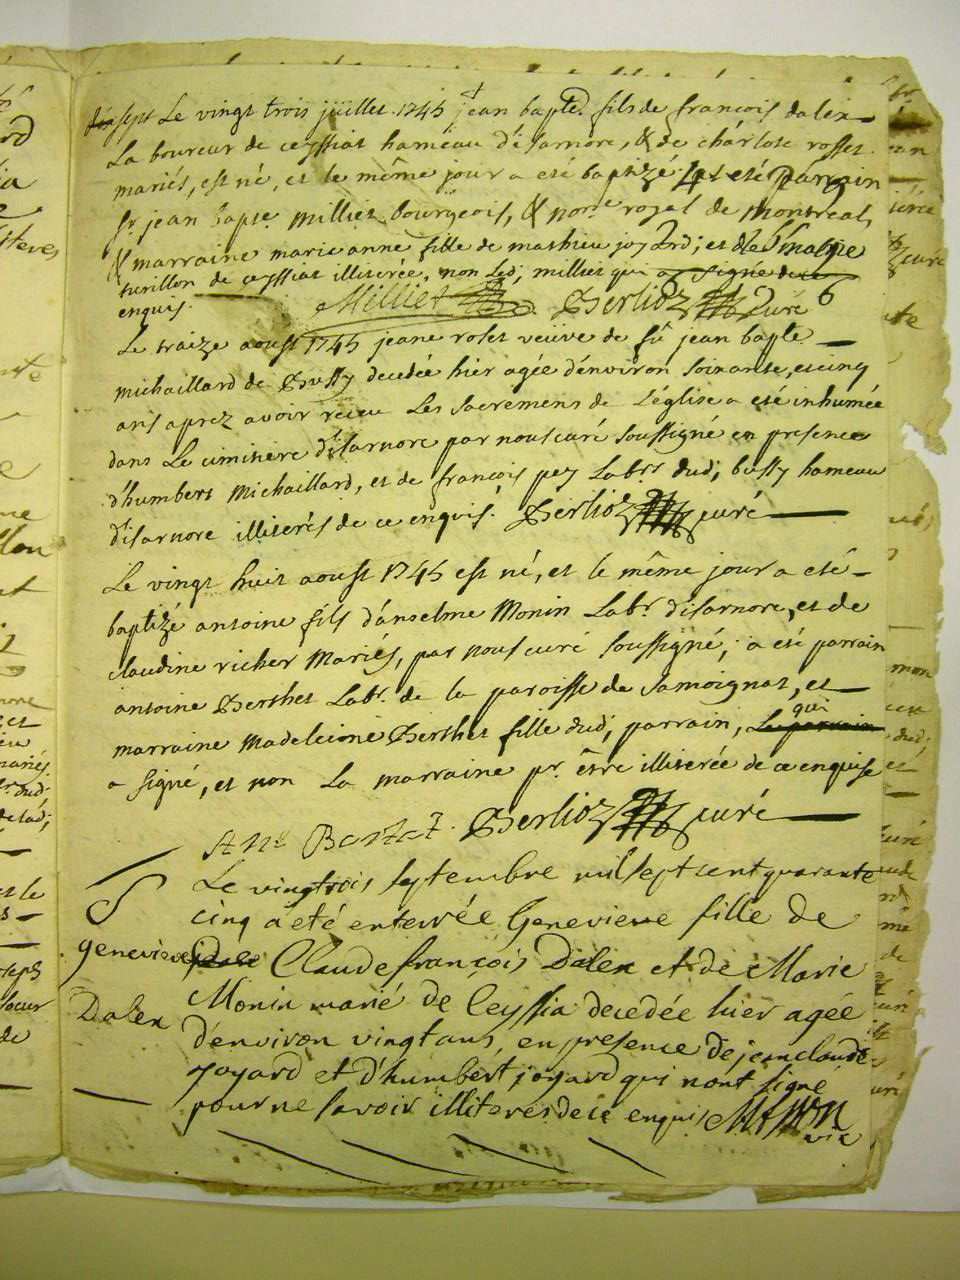 Le vingt trois jüillet 1745 jean bapte. fils de françois dalex
La boureur de ceyssiat hameau d'isarnore, & de charlote rosset
mariés, est né, et le même jour a eté baptizé. et eté parrain
Sr jean bapte Milliet bourgeois, & nore. royal de Montreal,
& marraine marie anne fille de mathieu joyard; et
turillon de ceyssiat illiterée, non led; milliet qui a signé de ce
enquis. Milliet Berlioz curé
Le traize aoust 1745 jeane roset veüive de fû jean bapte
michaillard de Bussy decedée hier agée d'environ soixante, et cinq
ans aprez avoir receu Les sacremens de L'église a eté inhumée
dans Le cimitiere d'isarnore par nous curé soussigné en presence
d'humbert Michaillard, et de françois pey Labr. dud; bussy hameau
d'isarnore illiterés de ce enquis. Berlioz curé
Le vingt huit aoust 1745 est né, et le même jour a eté
baptizé antoine fils d'anselme Monin Labr. d'isarnore, et de
claudine richer Mariés, par nous curé soussigné; a eté parrain
antoine Berthet Labr. de la paroisse de Samoignat, et
marraine Madeleione Berthet fille dud; parrain, Le parrain qui
a signé, et non La marraine pr. être illiterée de ce enquise
Ant Bertet. Berlioz curé
Le vingtrois septembre mil sept sent quarante
cinq a eté enterrée Genevieve fille de
genevieve Claude françois Dalex et de Marie
Dalex Monin marié de Ceyssia decedée hier agée
d'environ vingt ans, en presence de jean claude
joyard et d'humbert joyard qui nont signé
pour ne savoir illiteres de ce enquis
vic